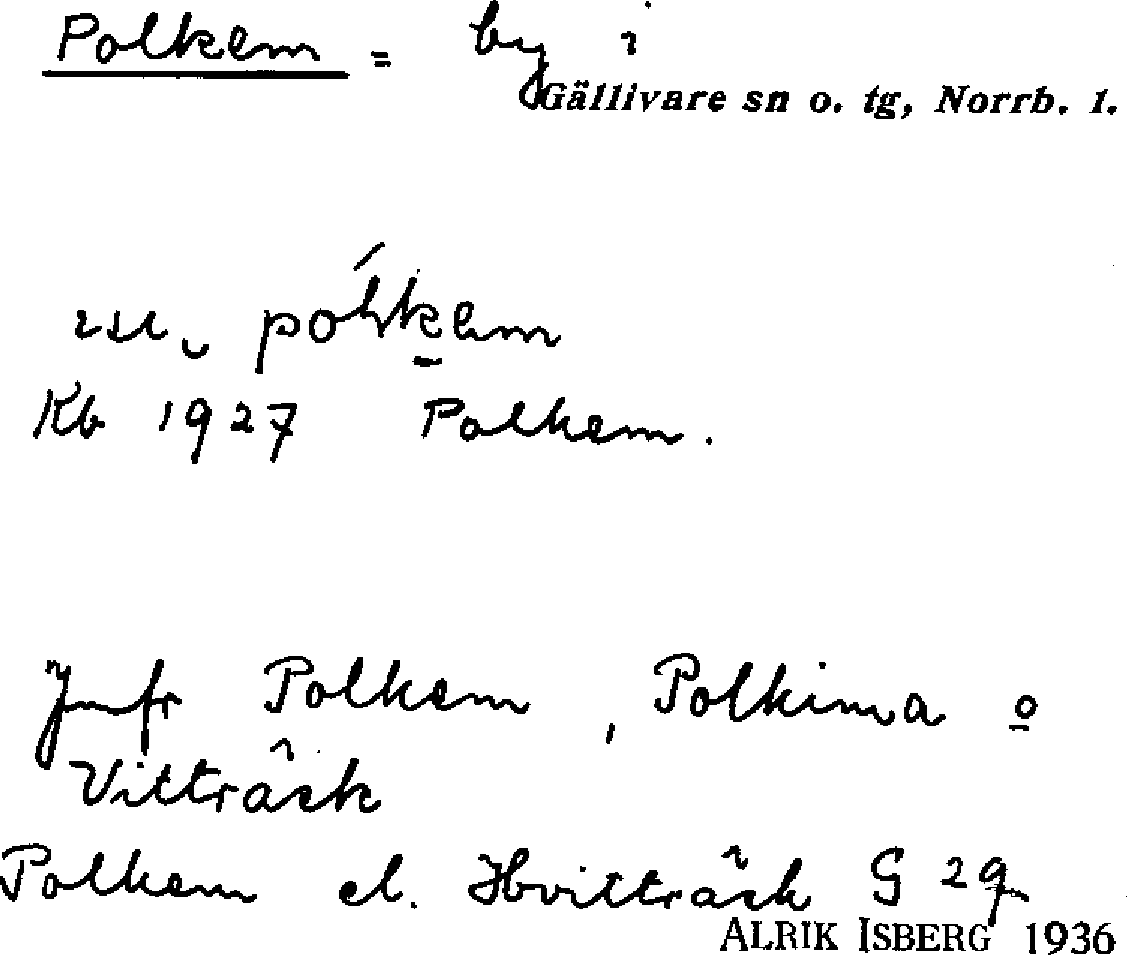 Polkem = by i
Gällivare sn o. tg, Norrb. l.
uu. pólkem
Kb 1927 Polkem.
Jmfr Polkem, Polkima o
Vitträsk
Polkem el. Hvitträsk G 29
ALRIK ISBERG 1936